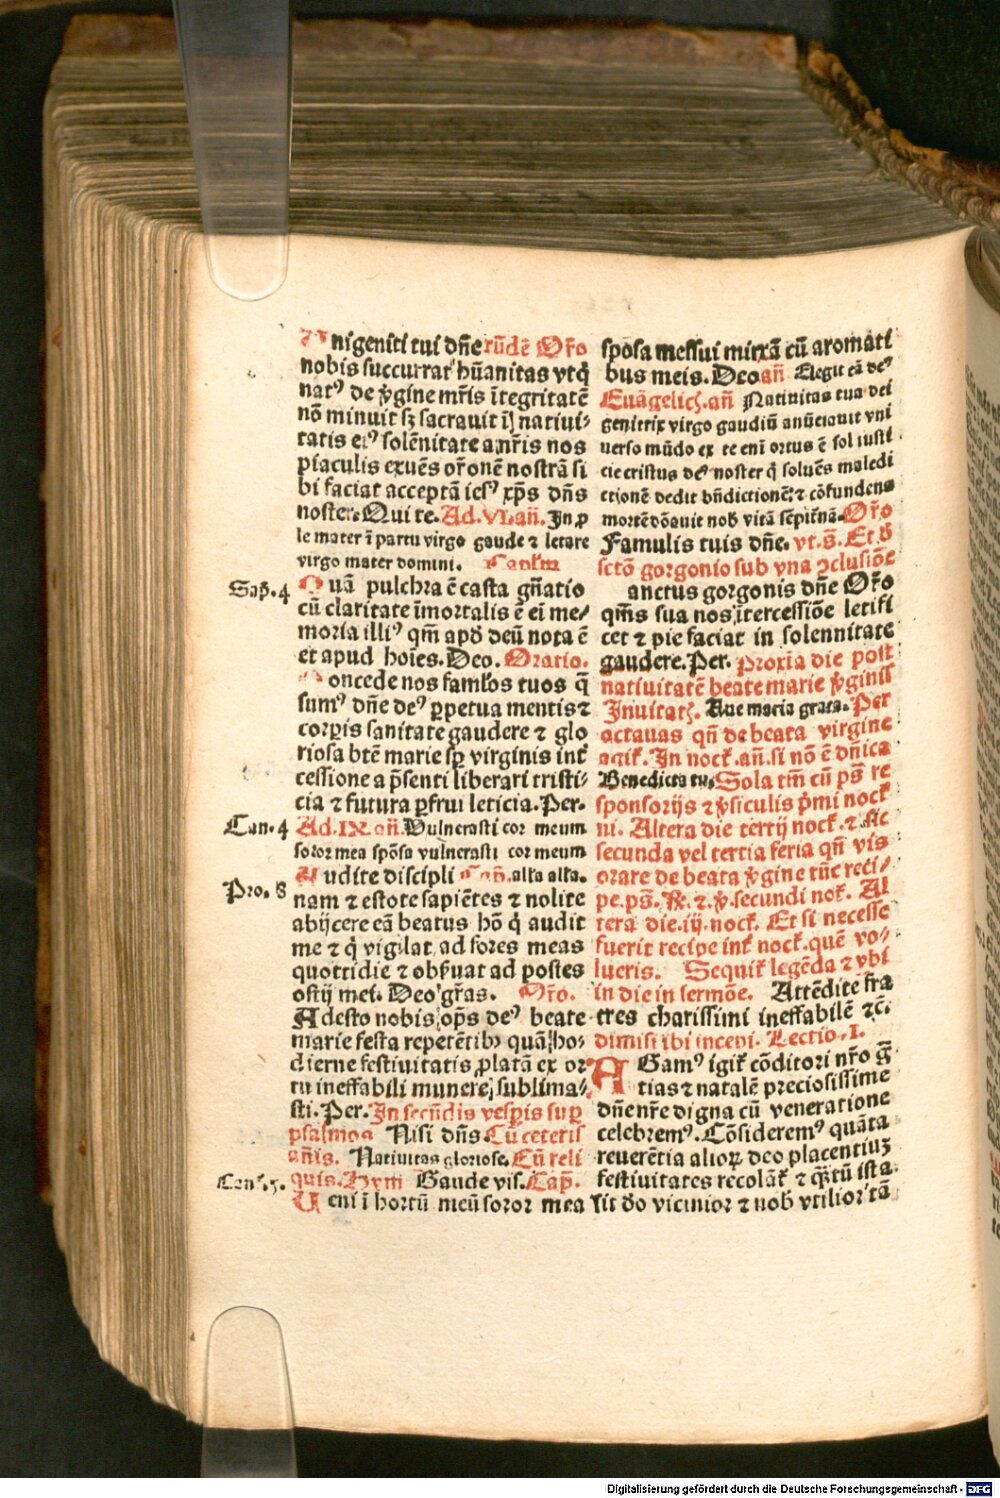 Unigeniti tui dñe rūdē Oŕo
nobis succurrat hūanitas vtq̄
natꝰ de v̄gine mr̄is ītegritatē
nō minuit sꝫ sacrauit ī natiui-
tatis eiꝰ solēnitate a nr̄is nos
piaculis exuēs oŕonē nostrā si
bi faciat acceptā iesꝰ xp̄s dñs
noster. Qui te. Ad. VI. añ. In p
le mater ī partu virgo gaude ⁊ letare
virgo mater domini. Capl'm
Sap̄. 4
Quā pulchra ē casta gñatio
cū claritate īmortalis ē eī me-
moria illiꝰ qm̄ apđ deū nota ē
et apud hoīes. Deo. Oratio.
Concede nos famlos tuos q̄
sumꝰ dñe deꝰ ꝑpetua mentis ⁊
corꝑis sanitate gaudere ⁊ glo
riosa btē marie sꝑ virginis int̄
cessione a p̄senti liberari tristi-
cia ⁊ futura ꝑfrui leticia. Per.
Can. 4
Ad. IX. añ. Vulnerasti cor meum
soror mea spōsa vulnerasti cor meum
Audite discipli Cap̄. alla alla.
Pro. 8
nam ⁊ estote sapiētes ⁊ nolite
abijcere eā beatus hō q̄ audit
me ⁊ q̄ vigilat ad fores meas
quottidie ⁊ obẜuat ad postes
ostij mei. Deo gr̄as. Oŕo.
Adesto nobis op̄s deꝰ beate
marie festa repetētibꝫ quā ho-
dierne festiuitatis ꝓlatā ex or
tu ineffabili munere sublima-
sti. Per. In secūdis vesꝑis suꝑ
psalmos Nisi dñs. Cū ceteris
añis. Natiuitas gloriose. Cū reli
quis. Hym Gaude vis. Cap̄.
Can. 5.
Ueni ī hortū meū soror mea
spōsa messui mirrā cū aromati
bus meis. Deo añ Elegit eā deꝰ
Euāgelicꝫ. añ Natiuitas tua dei
genitrix virgo gaudiū anūciauit vni
uerso mūdo ex te enī ortus ē sol iusti
cie cristus deꝰ noster q̄ soluēs maledi
ctionē dedit bñdictionē: ⁊ cōfundens
mortē dōauit nob vitā sēpit̄nā. Oŕo
Famulis tuis dñe. vt. s̄. Et đ
sctō gorgonio sub vna ꝯclusiōe
Sanctus gorgonis dñe Oŕo
qm̄s sua nos ītercessiōe letifi
cet ⁊ pie faciat in solennitate
gaudere. Per. Proxīa die post
natiuitatē beate marie v̄ginis
Inuitatꝫ. Aue maria grata. Per
octauas qñ de beata virgine
agit̄. In noct̄. añ. si nō ē dñica
Benedicta tu. Sola tm̄ cū ps̄ re
sponsorijs ⁊ v̄siculis p̄mi noct̄
ni. Altera die tertij noct̄. ⁊ sic
secunda vel tertia feria qñ vis
orare de beata v̄gine tūc reci-
pe. ps̄. ℟. ⁊. v̄. secundi not̄. Al
tera die. iij. noct̄. Et si necesse
fuerit recipe int̄ noct̄. quē vo-
lueris. Sequit̄ legēda ⁊ vbi
in die in sermōe. Attēdite fra
tres charissimi ineffabilē ⁊c̄.
dimisi ibi incepi. Lectio. I.
Agamꝰ igit̄ cōditori nŕo ḡ
tias ⁊ natalē preciosissime
dñe nŕe digna cū veneratione
celebremꝰ. Cōsideremꝰ quāta
reuerētia alioꝝ deo placentiuꝫ
festiuitates recolāt̄ ⁊ q̄tū ista
sit đo vicinior ⁊ nob vtilior tā
Digitalisierung gefördert durch die Deutsche Forschungsgemeinschaft - DFG